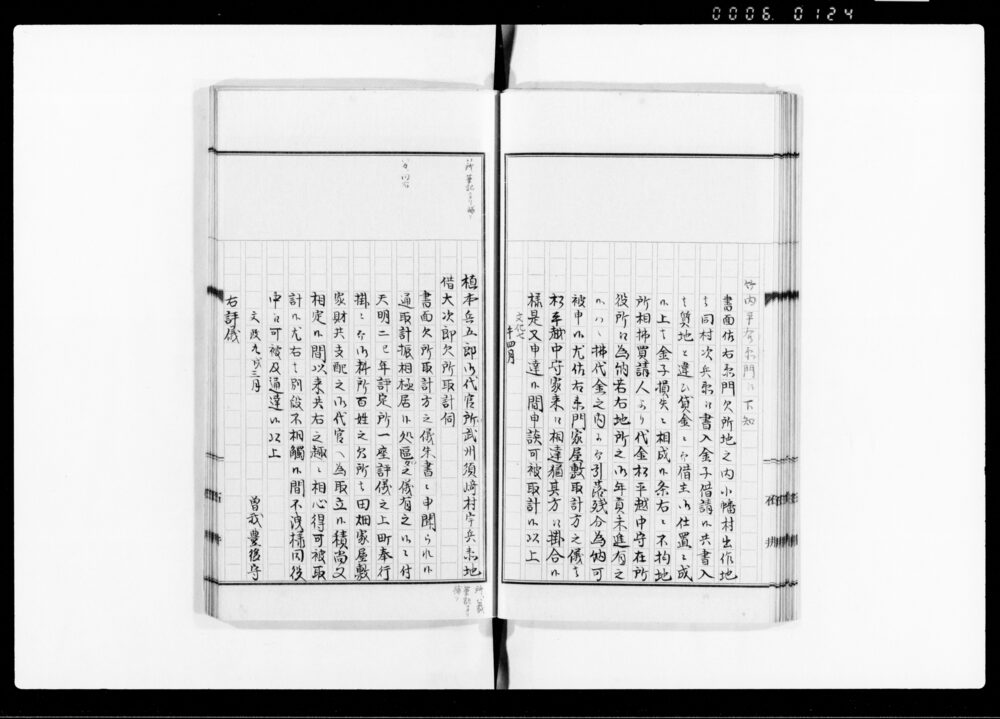 0006.0124
竹内平右衛門江下知
書面佐右衛門欠所地之内小幡村出作地
者同村次兵衛江書入金子借請候共書入
者質地と違ひ貸金ニ付借主御仕置ニ成
候上者金子損失ニ相成候条右ニ不拘地
所相払買請人より代金松平越中守在所
役所江為納若右地所之御年貢未進有之
候ハヽ払代金之内より引落残分為納可
被申候尤佐右衛門家屋敷取計方之儀者
松平越中守家来江相達猶其方江掛合候
様是又申達候間申談可被取計候以上
文化七
午四月
植本兵五郎御代官所武州須崎村宇兵衛地
借大次郎欠所取計伺
書面欠所取計方之儀朱書ニ申聞られ候
通取計振相極居候処区々之儀有之候ニ付
天明二巳年評定所一座評儀之上町奉行
掛ニ而御料所百姓之欠所者田畑家屋敷
家財共支配之御代官へ為取立候積尚又
相定候間以来共右之趣ニ相心得可被取
計候尤右者別段不相触候間不洩様同役
中江可被及通達候以上
文政九戌三月
曽我豊後守
右評儀